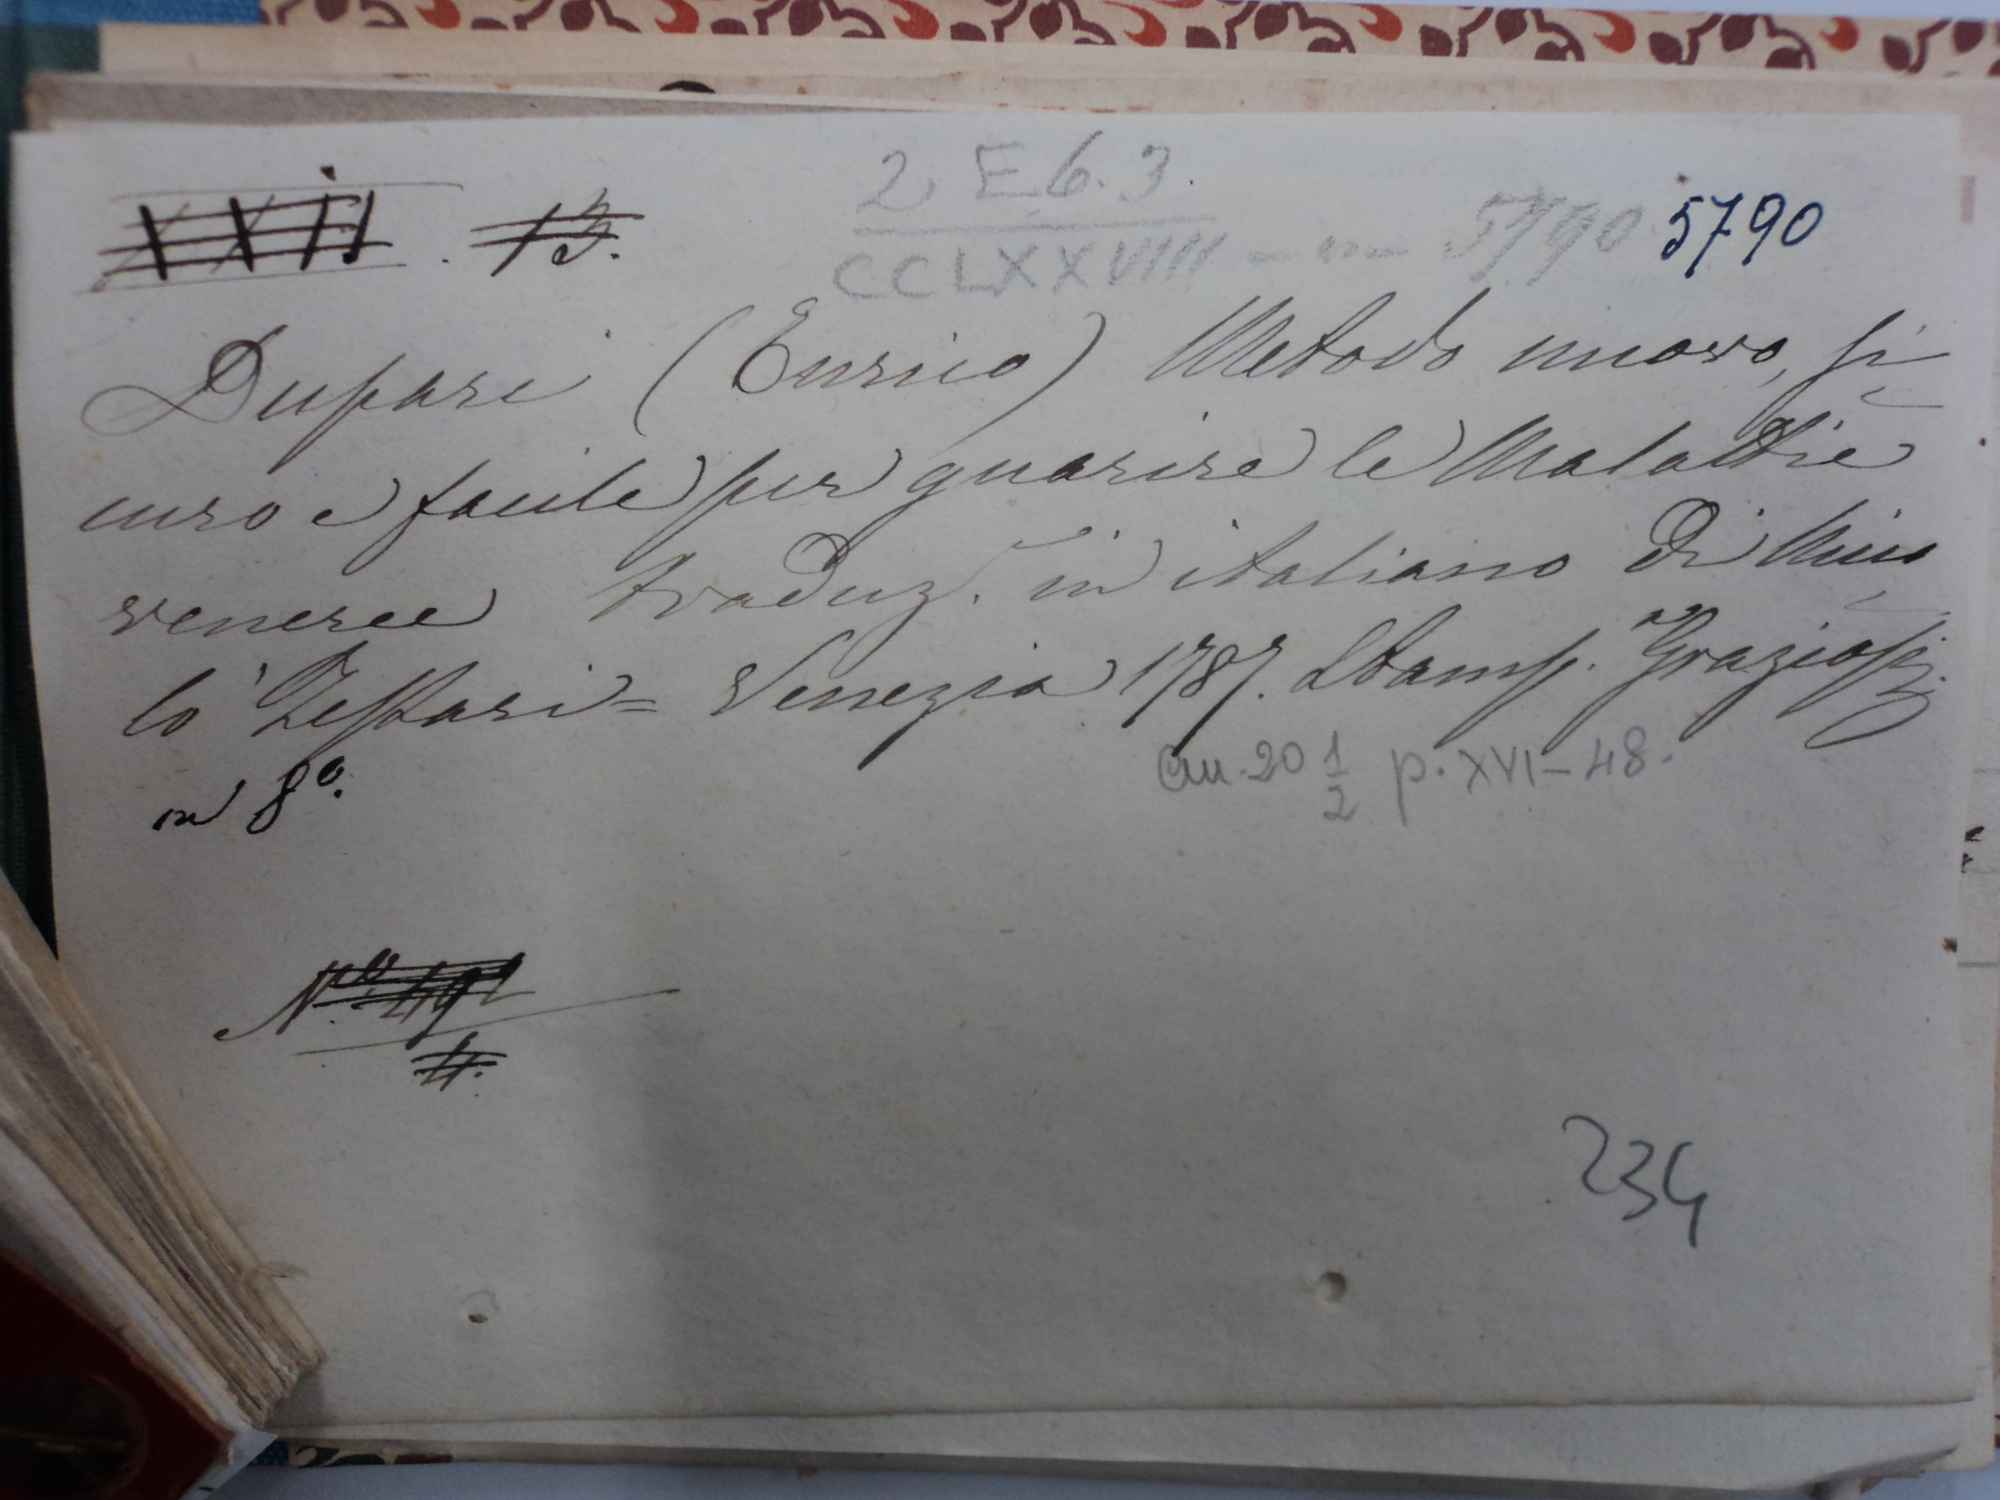 XXII . 13.
2 E 6. 3.
CCLXXVIII - - 5790 5790
Dupare (Enrico) Metodo nuovo, si
curo e facile per guarire le Malattie
veneree traduz. in italiano di Nico
lò Tessari = Venezia 1787. Stamp. Graziosi
in 8º.
cm. 20 1/2 p. XVI-48.
Nº 492
4.
234